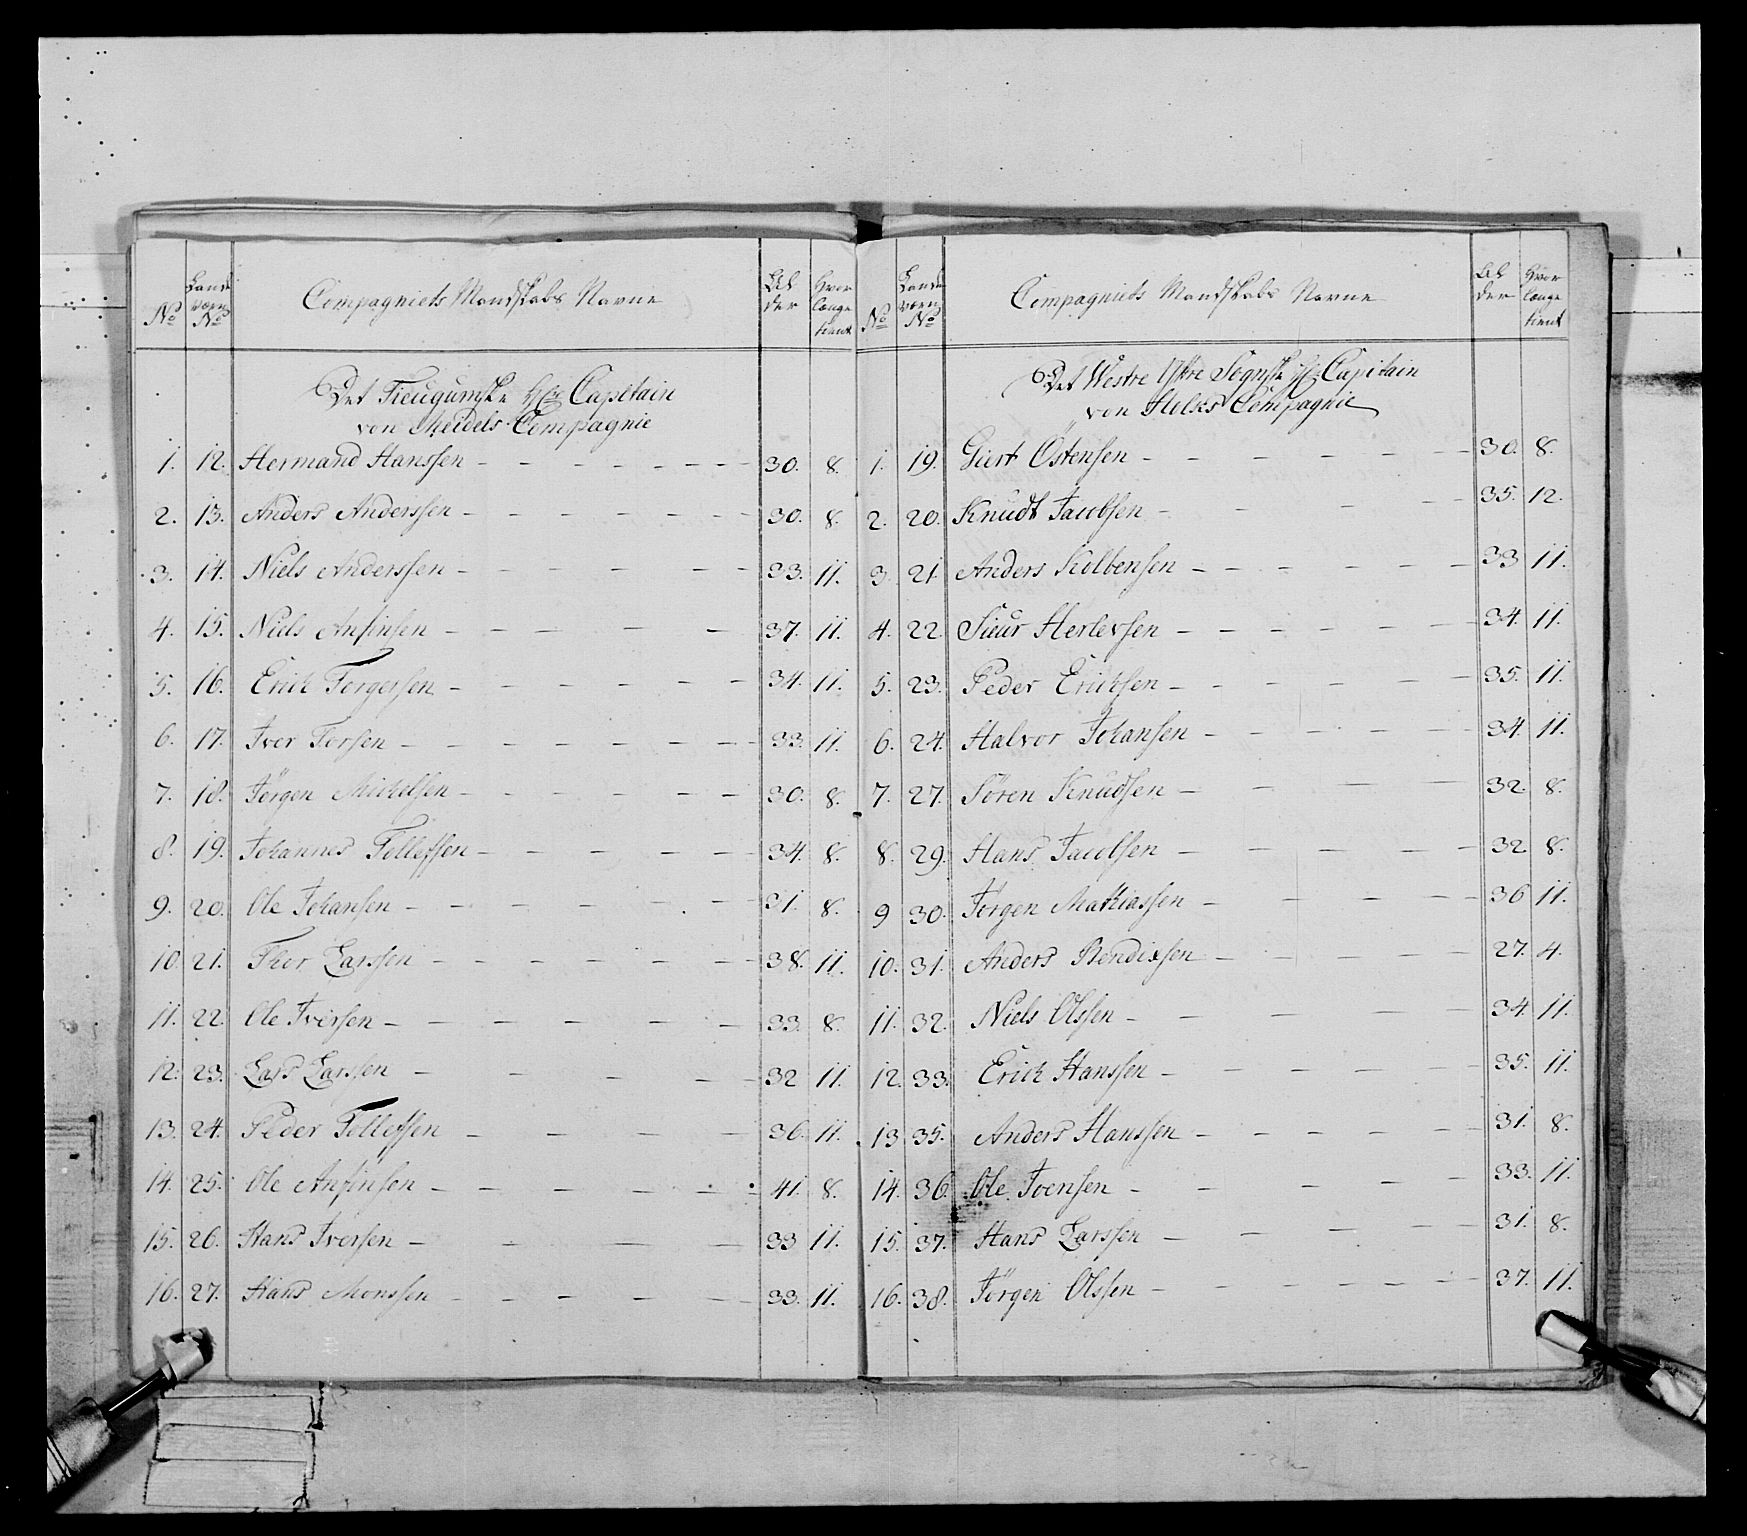 No Lands værns No Compagniets Mandskabs Navne Al der Hvor længe tient
Det Fieugumske H Capitain
von Cheidels Compagnie
1. 12. Hermand Hanssen 30. 8.
2. 13. Anders Anderssen 30. 8.
3. 14. Niels Anderssen 33. 11.
4. 15. Niels Anfinsen 37. 11.
5. 16. Erick Torgersen 34. 11.
6. 17. Iver Torsen 33. 11.
7. 18. Jörgen Mickelsen 30. 8.
8. 19. Johannes Tollefsen 34. 8.
9. 20. Ole Johansen 31. 8.
10. 21. Thor Larssen 38. 11.
11. 22. Ole Iversen 33. 8.
12. 23. Lars Larssen 32 11.
13. 24. Peder Tollefsen 36. 11.
14. 25. Ole Anfinsen 41. 8.
15. 26. Hans Iversen 33 11.
16. 27. Hans Monssen 33. 11.
No Lands værns No Compagniets Mandskabs Navne Al der Hvor længe tient
Det Westre Yttre Sognske Capitain
von Holcks Compagnie
1. 19. Giert Östensen 30. 8.
2. 20. Knudt Jacobsen 35. 12.
3. 21 Anders Kolbensen 33 11.
4. 22. Siur Herlevsen 34. 11.
5. 23. Peder Ericksen 35. 11.
6. 24. Halvor Johansen 34. 11.
7. 27. Sören Knudsen 32. 8.
8. 29. Hans Jacobsen 32 8.
9 30. Jörgen Mathiassen 36 11.
10. 31. Anders Bendixsen 27. 4.
11. 32. Niels Olssen 34. 11.
12. 33. Erick Hanssen 35. 11.
13 35. Anders Hanssen 31. 8.
14. 36. Ole Ivensen 33. 11.
15. 37. Hans Larssen 31. 8.
16. 38. Jörgen Olssen 37. 11.